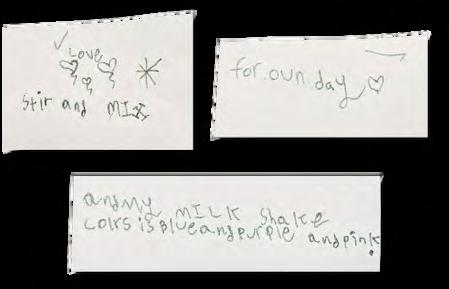 ✓ Love
stir and MIX
for own day
and My MILK Shake
Colrs is Blue and purple and pink.